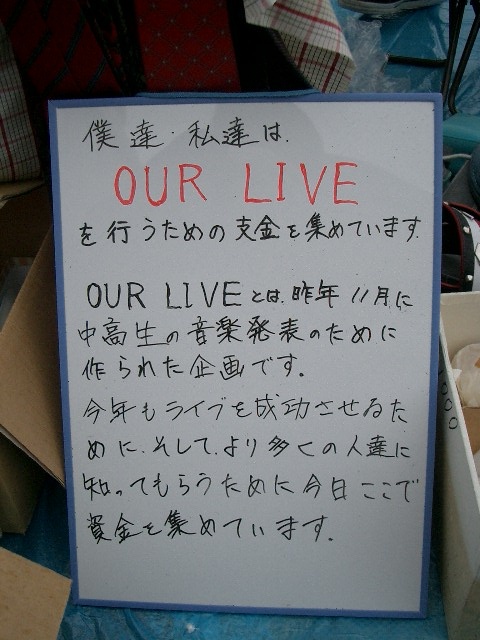 僕達・私達は、
OUR LIVE
を行うための支金を集めています。
OUR LIVEとは、昨年11月に
中高生の音楽発表のために
作られた企画です。
今年もライブを成功させるた
めに、そして、より多くの人達に
知ってもらうために今日ここで
資金を集めています。